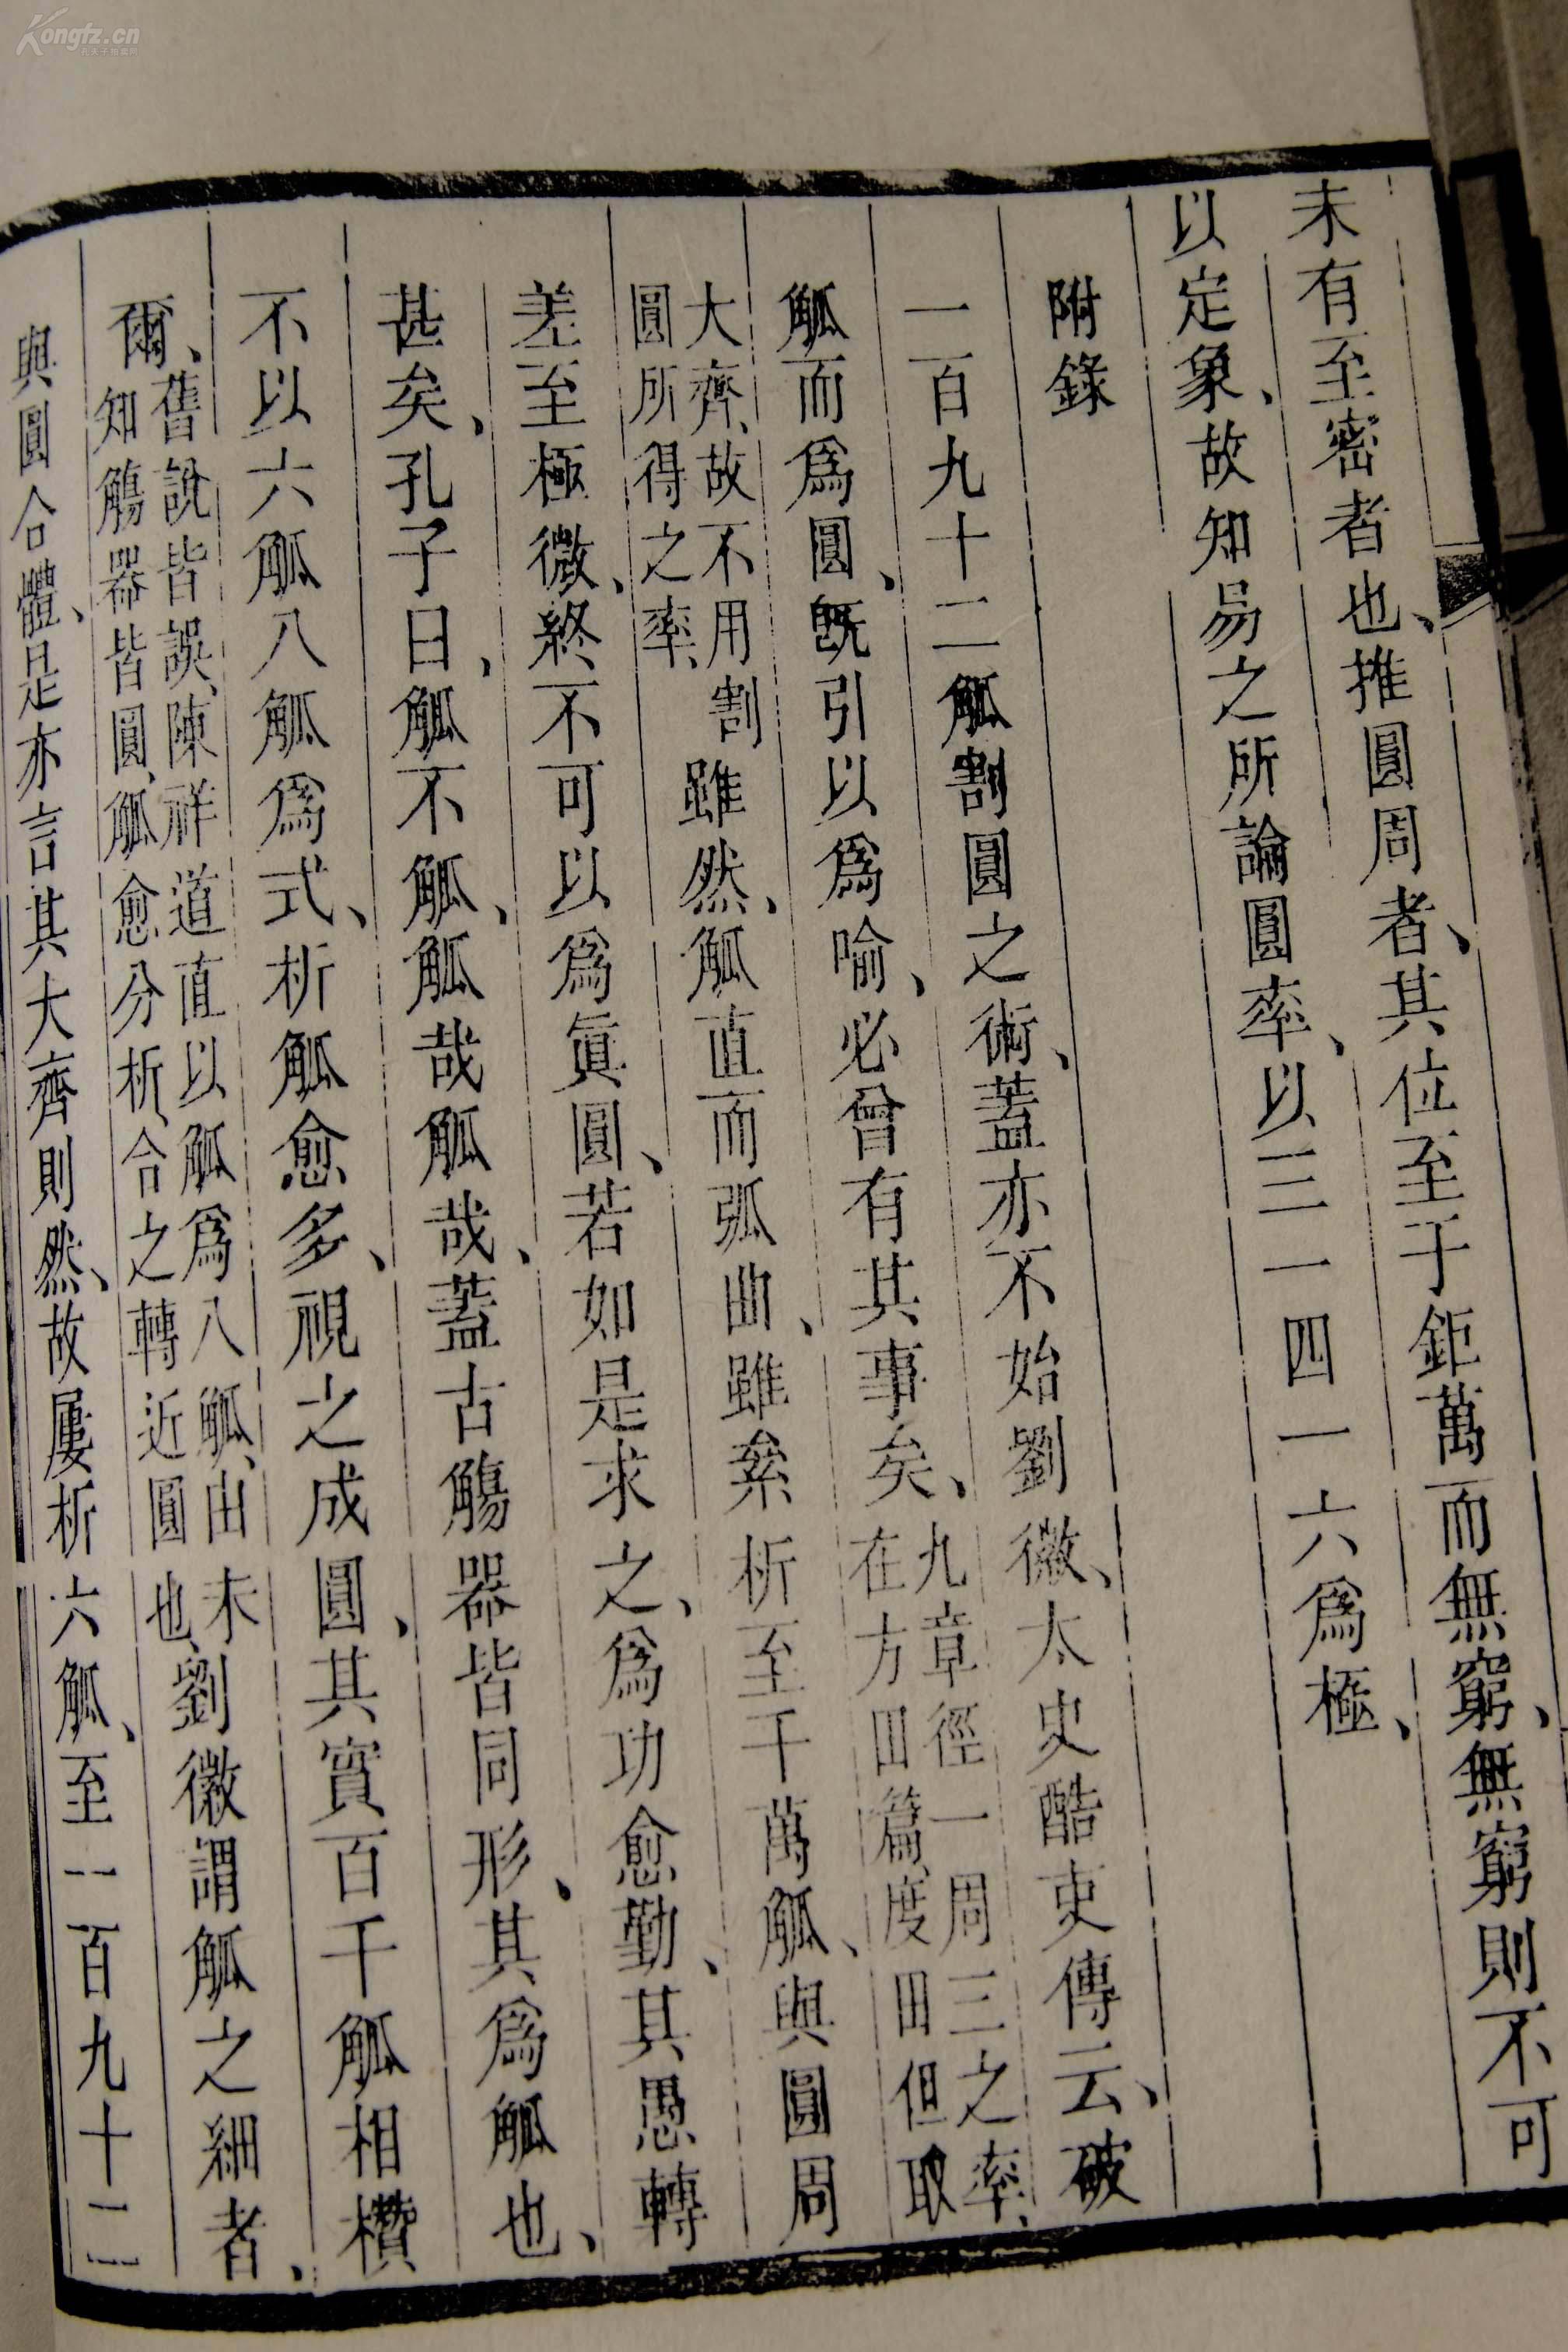 未有至密者也、推圓周者、其位至于鉅萬而無窮、無窮則不可
以定象、故知易之所論圓率、以三一四一六爲極、
附錄
一百九十二觚割圓之術、蓋亦不始劉徽、太史酷吏傳云、破
觚而爲圓、旣引以爲喻、必曾有其事矣、九章徑一周三之率、
在方田篇、度田但取
大齊、故不用割
圓所得之率、
雖然、觚直而弧曲、雖絫析至千萬觚、與圓周
差至極微、終不可以爲眞圓、若如是求之、爲功愈勤、其愚轉
甚矣、孔子曰、觚不觚、觚哉觚哉、蓋古觴器皆同形、其爲觚也、
不以六觚八觚爲式、析觚愈多、視之成圓、其實百千觚相欑
爾、舊說皆誤、陳祥道直以觚爲八觚、由未
知觴器皆圓、觚愈分析、合之轉近圓也、
劉徽謂觚之細者、
與圓合體、是亦言其大齊則然、故屢析六觚、至一百九十二
Kongfz.cn